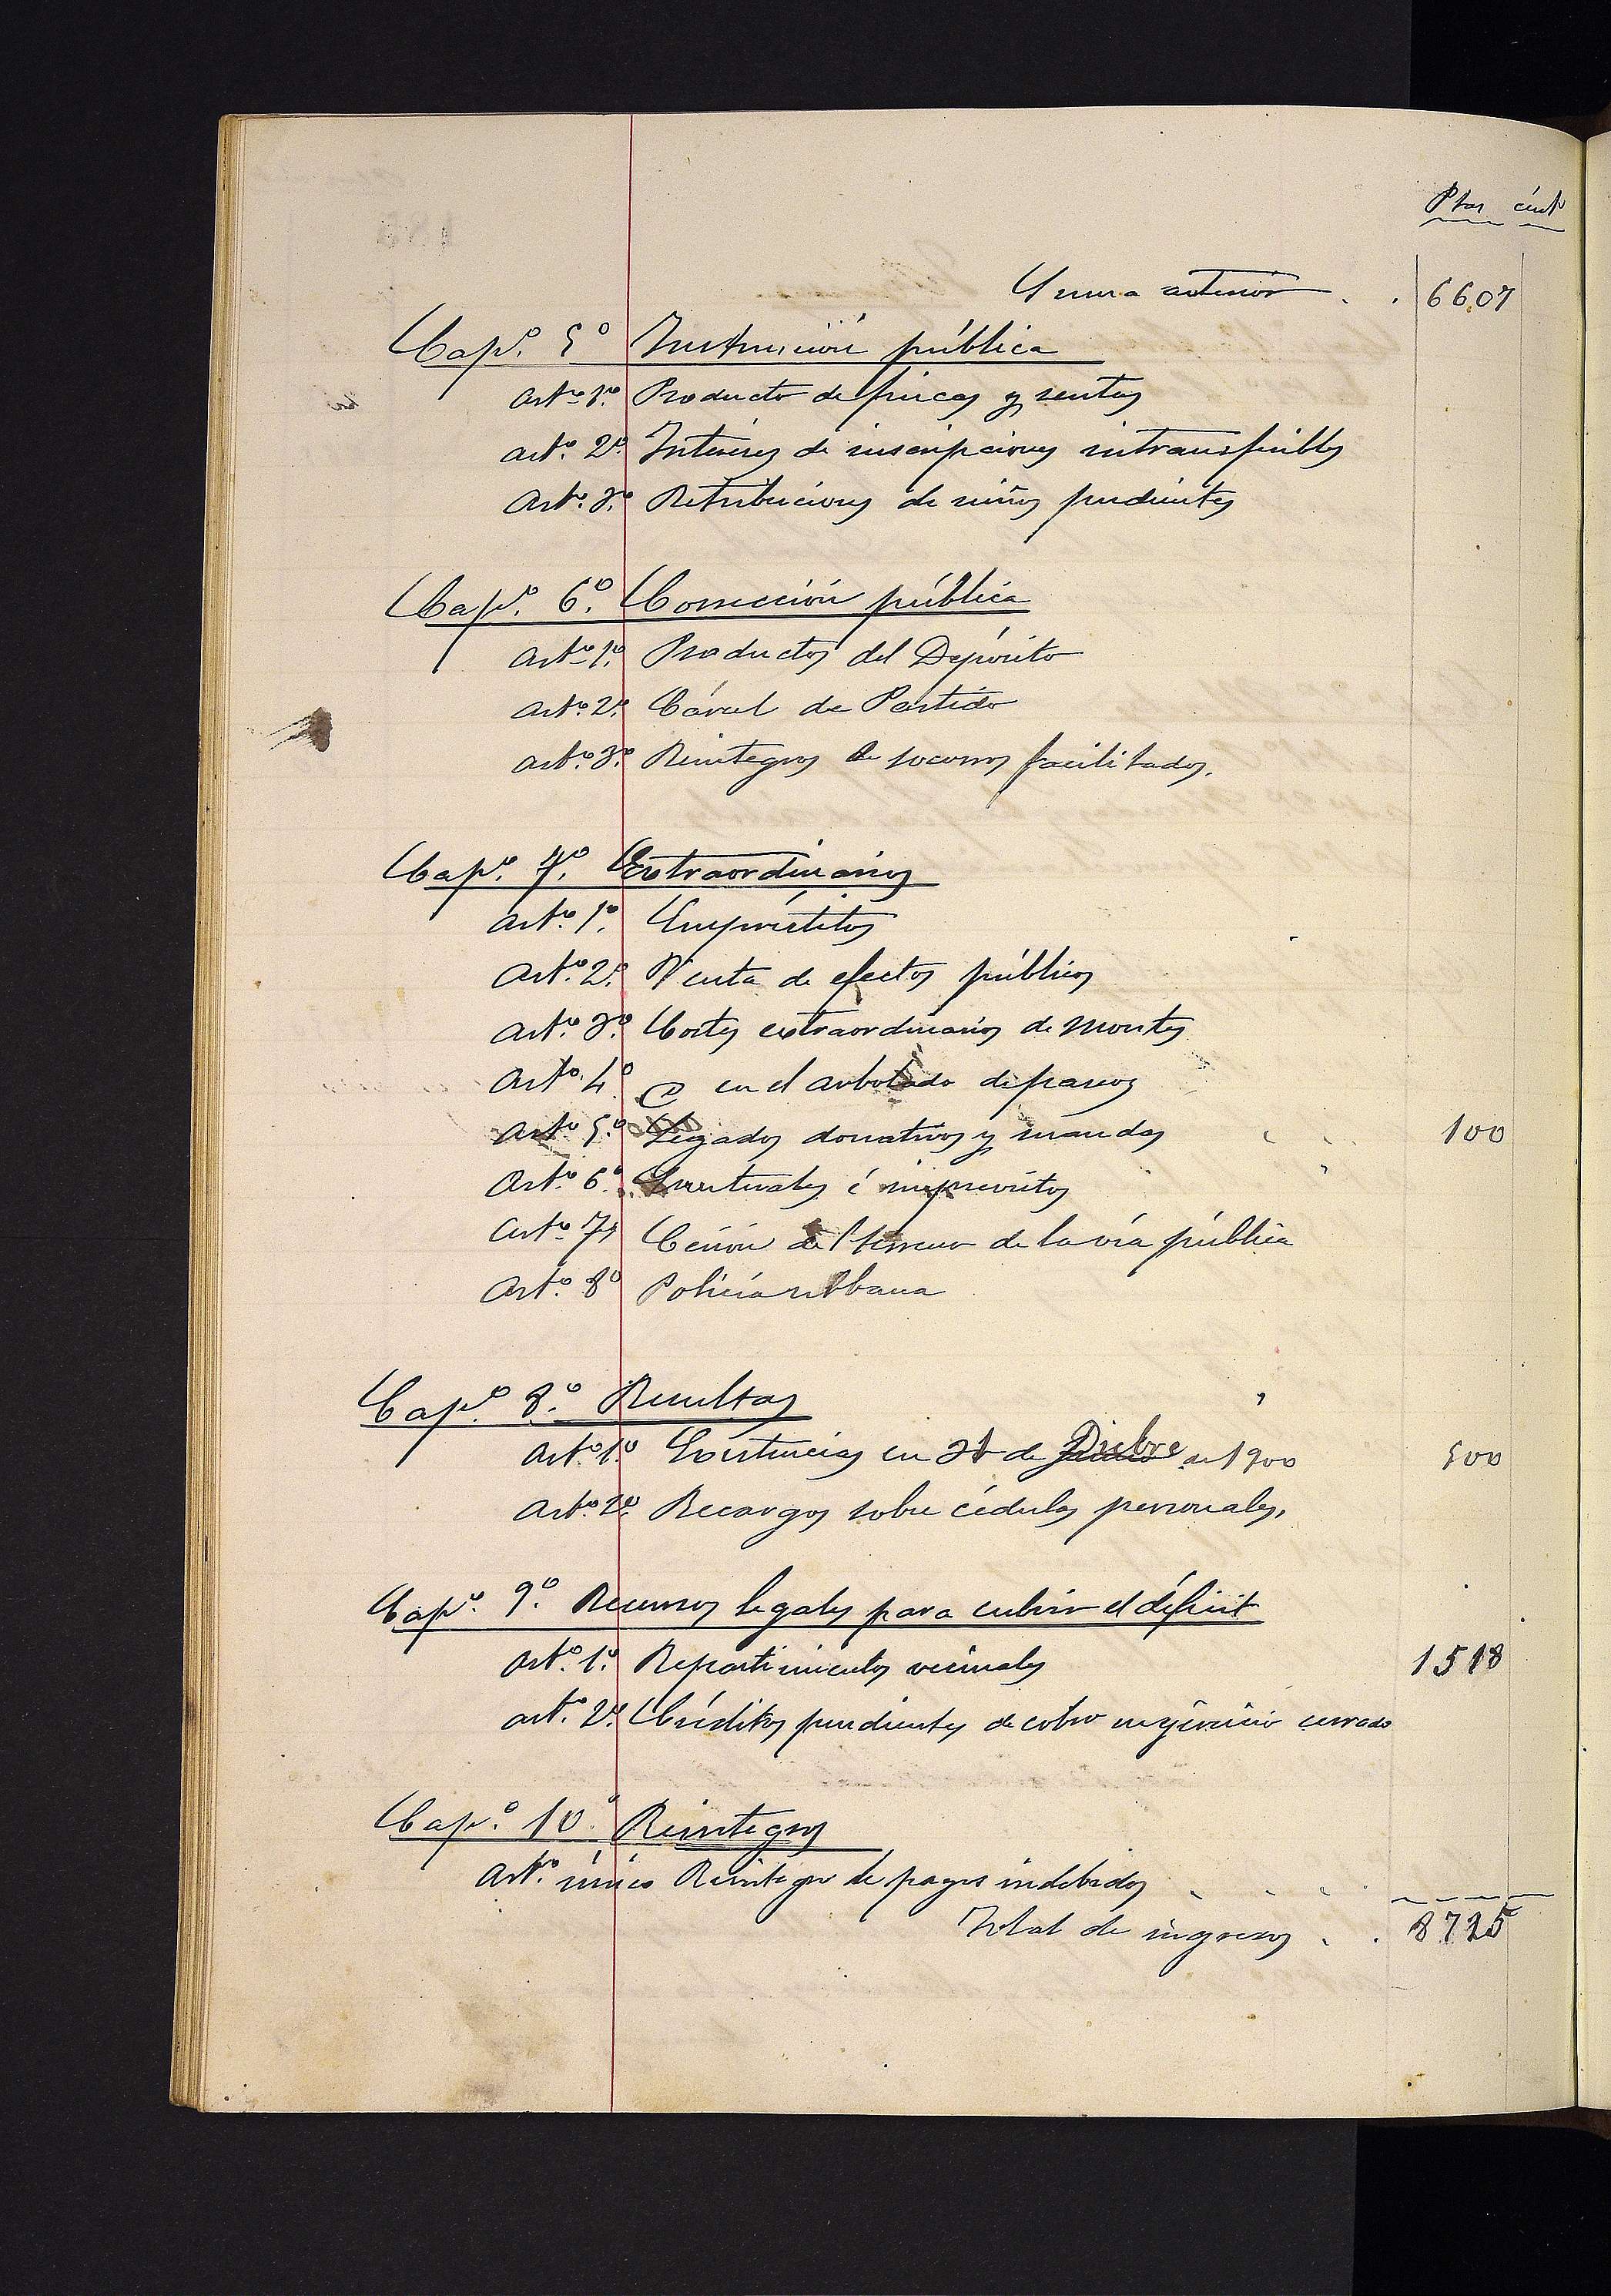 Ptas cént
Suma anterior . . 6607
Cap.º 5º Instrucción pública
Artº 1º. Producto de fincas y rentas
Artº. 2º. Intereses de inscripciones intransferibles
Artº. 3º. Retribuciones de niños pudientes
Cap.º 6º. Corrección pública
Artº 1º. Productos del Depósito
Artº. 2º. Cárcel de Partido
Artº. 3º. Reintegros de socorros facilitados.
Cap.º 7º. Extraordinarios
Artº. 1º. Empréstitos
Artº. 2º. Venta de efectos públicos
Artº. 3º. Cortes extraordinarios de montes
Artº. 4º en el arbolado de paseos
Artº 5º Legados donativos y mandas 100
Artº. 6º. Eventuales é imprevistos
Artº 7º Cesión del terreno de la vía pública
Artº. 8º Policía urbana
Cap.º 8º. Resultas
Artº. 1º. Existencias en 31 de Dicbre de 1900 500
Artº. 2º. Recargos sobre cédulas personales.
Cap.º 9º. Recursos legales para cubrir el déficit
Artº. 1º. Repartimientos vecinales 1518
Artº. 2º. Créditos pendientes de cobro en ejercicio cerrado
Cap.º 10º. Reintegros
Artº. único Reintegro de pagos indebidos
Total de ingresos . . 8725